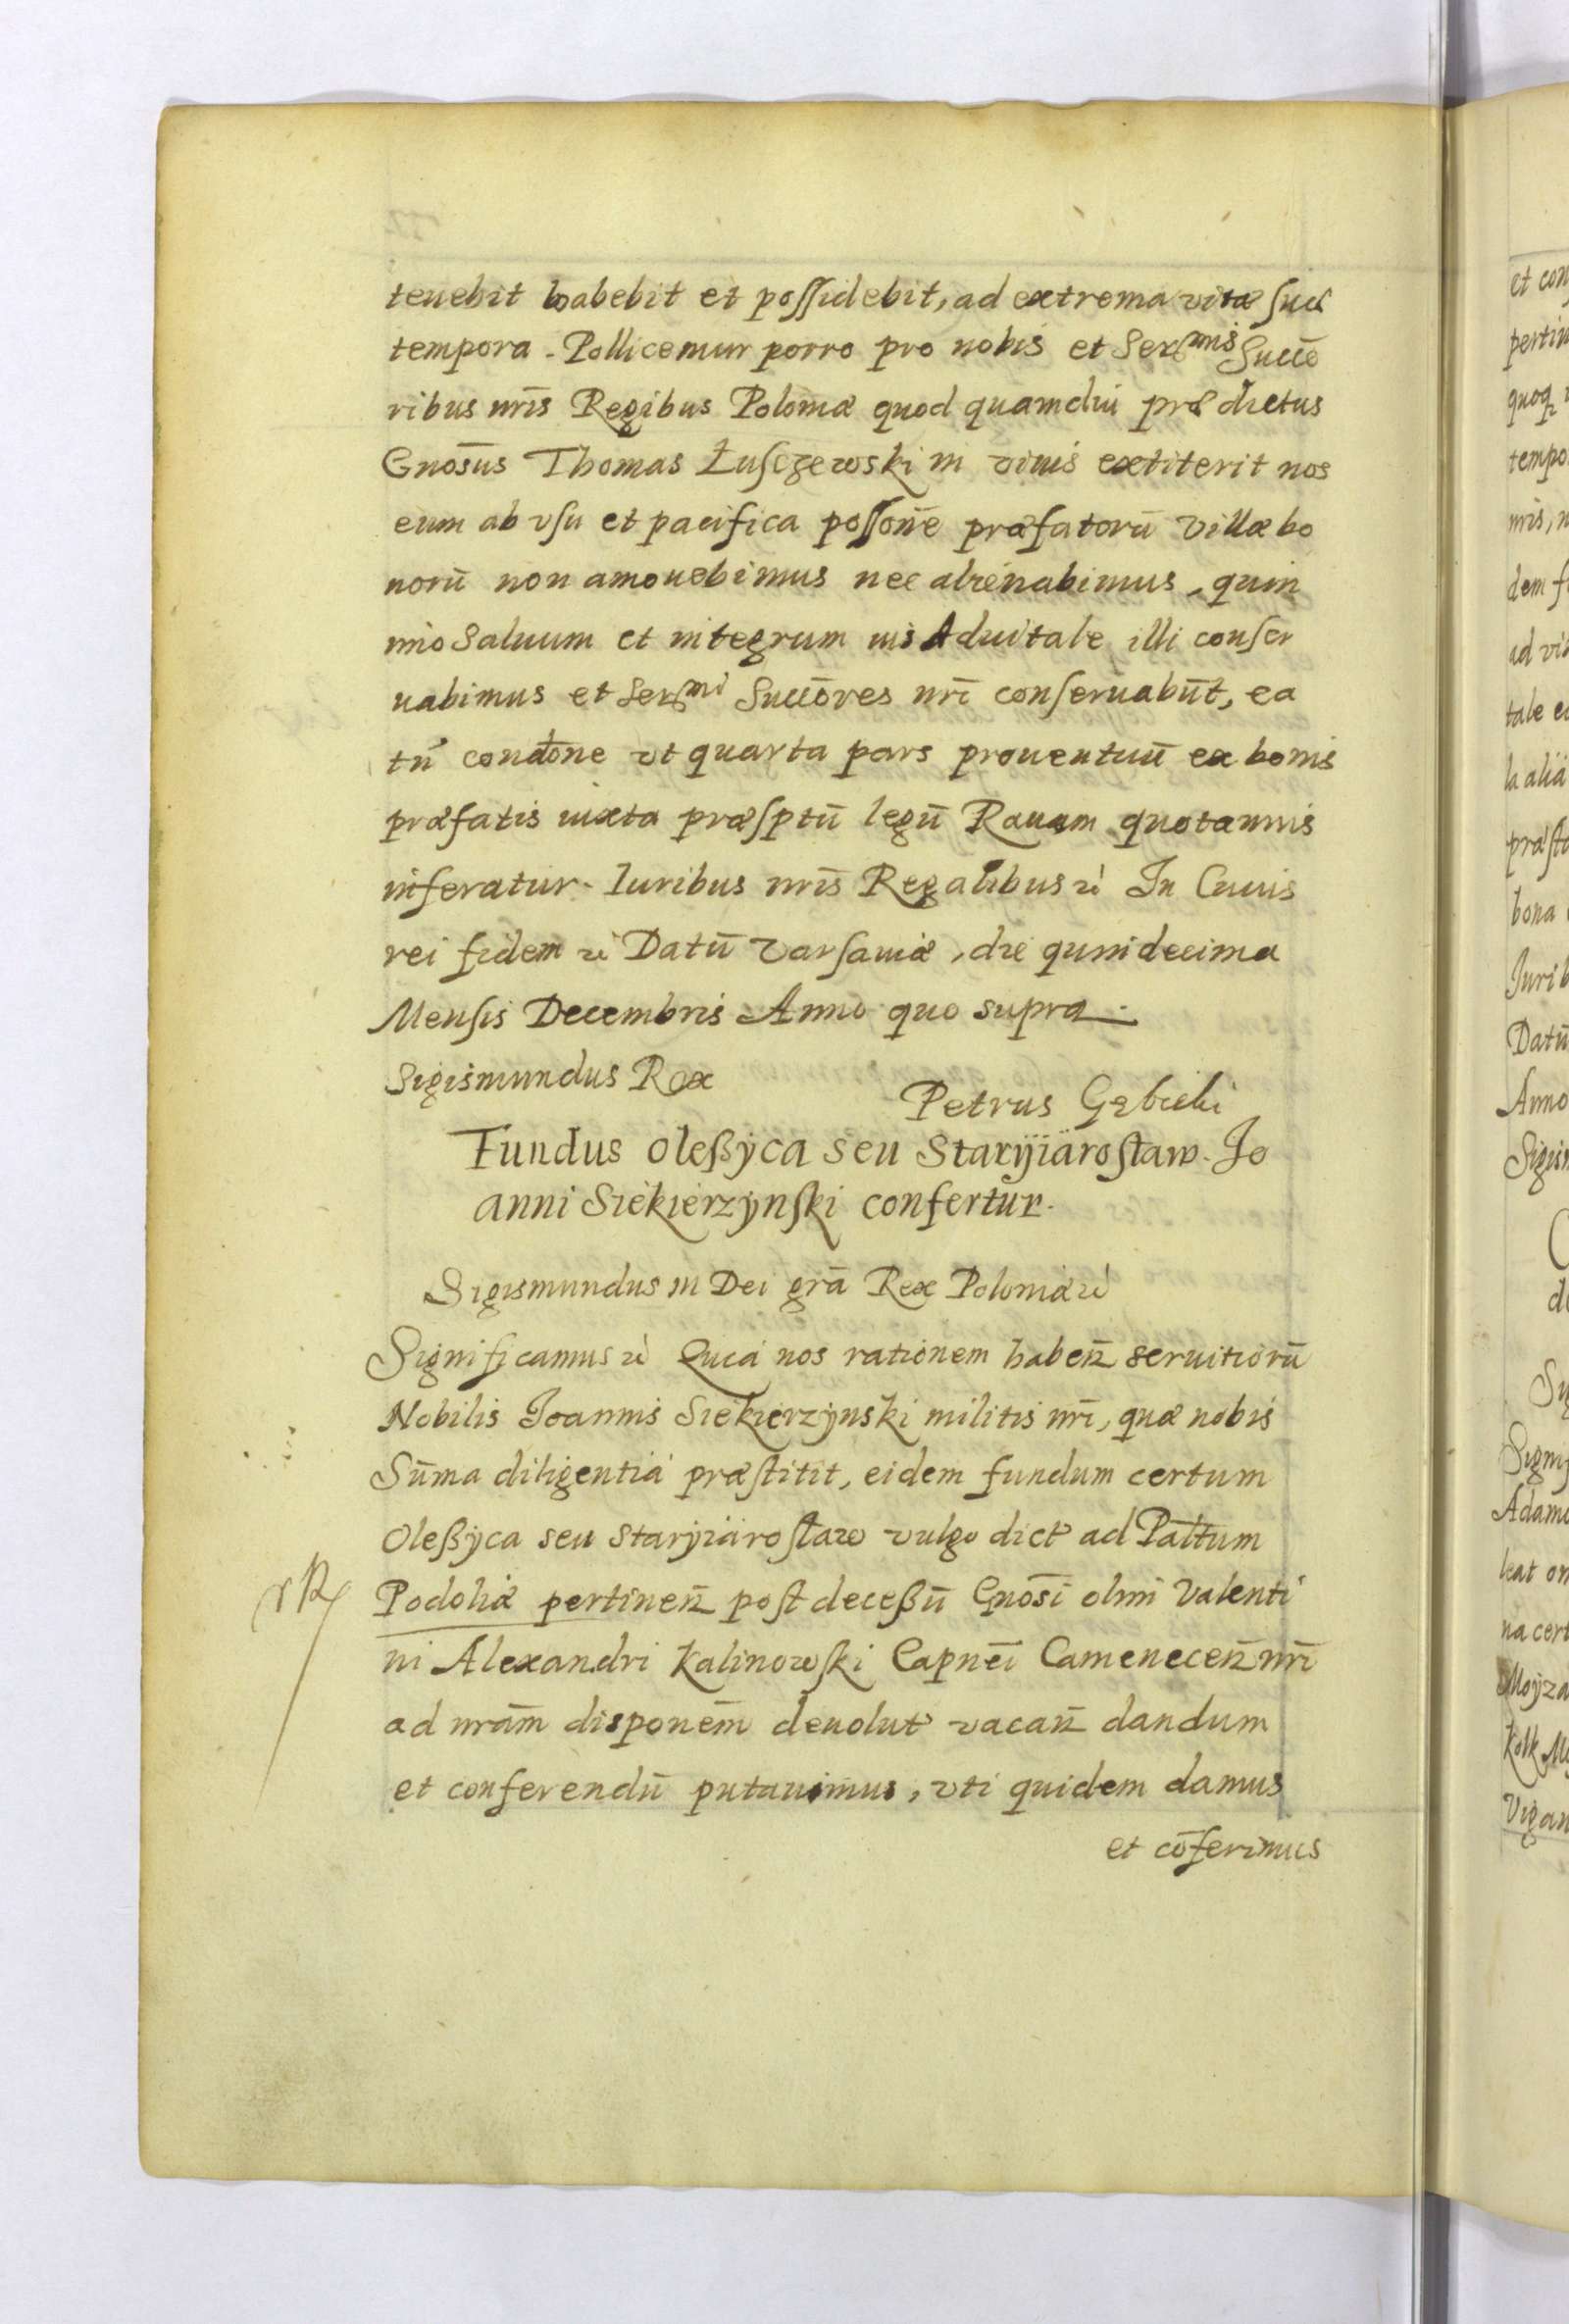 tenebit habebit et possidebit, ad extrema vitæ suæ
tempora. Pollicemur porro pro nobis et Serẽmis Succō
ribus nr̄is Regibus Poloniæ quod quamdiu prædictus
Gnōsus Thomas Łusczewski in viuis extiterit nos
eum ab vsu et pacifica possōne præfatorū Villæ bo
norū non amouebimus nec alienabimus, quin
imo Saluum et integrum ius Aduitale illi conser
uabimus et Serẽmi Succōres nr̄i conseruabūt, ea
tn̄ condōne vt quarta pars prouentuū ex bonis
præfatis iuxta præsptū legū Rauam quotannis
inferatur. Iuribus nr̄is Regalibus ꝛc̀ In Cuius
rei fidem ꝛc̀ Datū Varsauiæ, die quindecima
Mensis Decembris Anno quo supra.
Sigismundus Rex
Petrus Gębicki
Fundus Oleßÿca seu Starÿiärostaw. Jo
anni Siekierzÿnski confertur.
Sigismundus III Dei grā Rex Poloniæ ꝛc̀
Significamus ꝛc̀ Quia nos rationem haben̄ seruitiorū
Nobilis Joannis Siekierzÿnski militis nr̄i, quæ nobis
Sūma diligentia præstitit, eidem fundum certum
Oleßÿca seu Starÿiärostaw vulgo dict' ad Pałtum
Podoliæ pertinen̄ post deceßū Gnōsi olim Valenti
ni Alexandri Kalinowski Capnēi Camenecen̄ nr̄i
ad nrām disponēm deuolut' vacan̄ dandum
et conferendū putauimus, vti quidem damus
et cōferimus
et con
pertin
quoqꝫ
tempo
nris, n
dem f
ad vi
tale e
la aliä
præst
bona
Jurib
Datū
Anno
Sigis
d
Signi
Adam
leat on
na cert
Moÿza
Kolk
Vigan